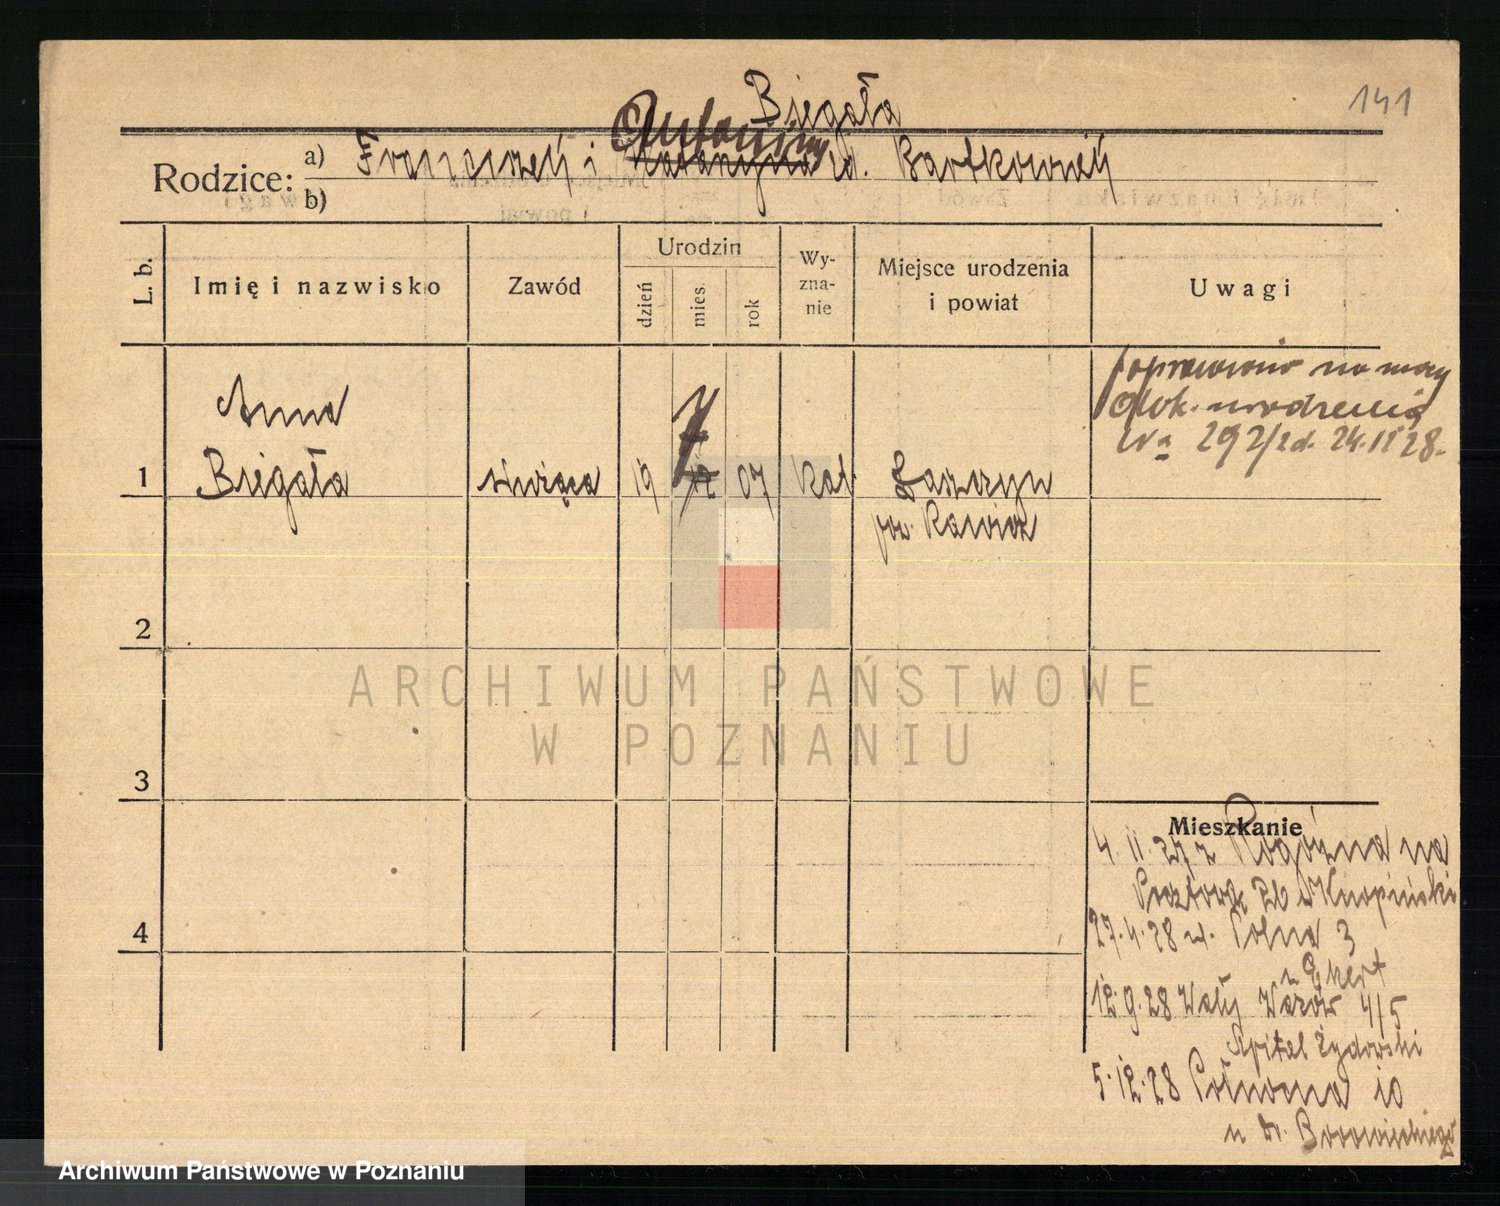 141
Biegała
Antoniny
Rodzice: a) Franciszek i Katarzyna d. Bartkowiak
b)
L. b. Imię i nazwisko Zawód Urodzin dzień mies. rok Wy-zna-nie Miejsce urodzenia i powiat Uwagi
poprawiono na mocy
dok. urodzenia
Nr 292/2 d. 24.11 28.
Anna
1 Biegała służąca 19 7 12 07 kat.
pow. Rawicz
2
3
4
ARCHIWUM PAŃSTWOWE
W POZNANIU
Mieszkanie
4. 11. 27 z Rogoźna na
27.4.28 ul. Polna 3
u Ekert
12.9.28 Wały Wazów 4/5
Szpital Żydowski
5.12.28 Północna 10
u dr. Borowieckiego
Archiwum Państwowe w Poznaniu